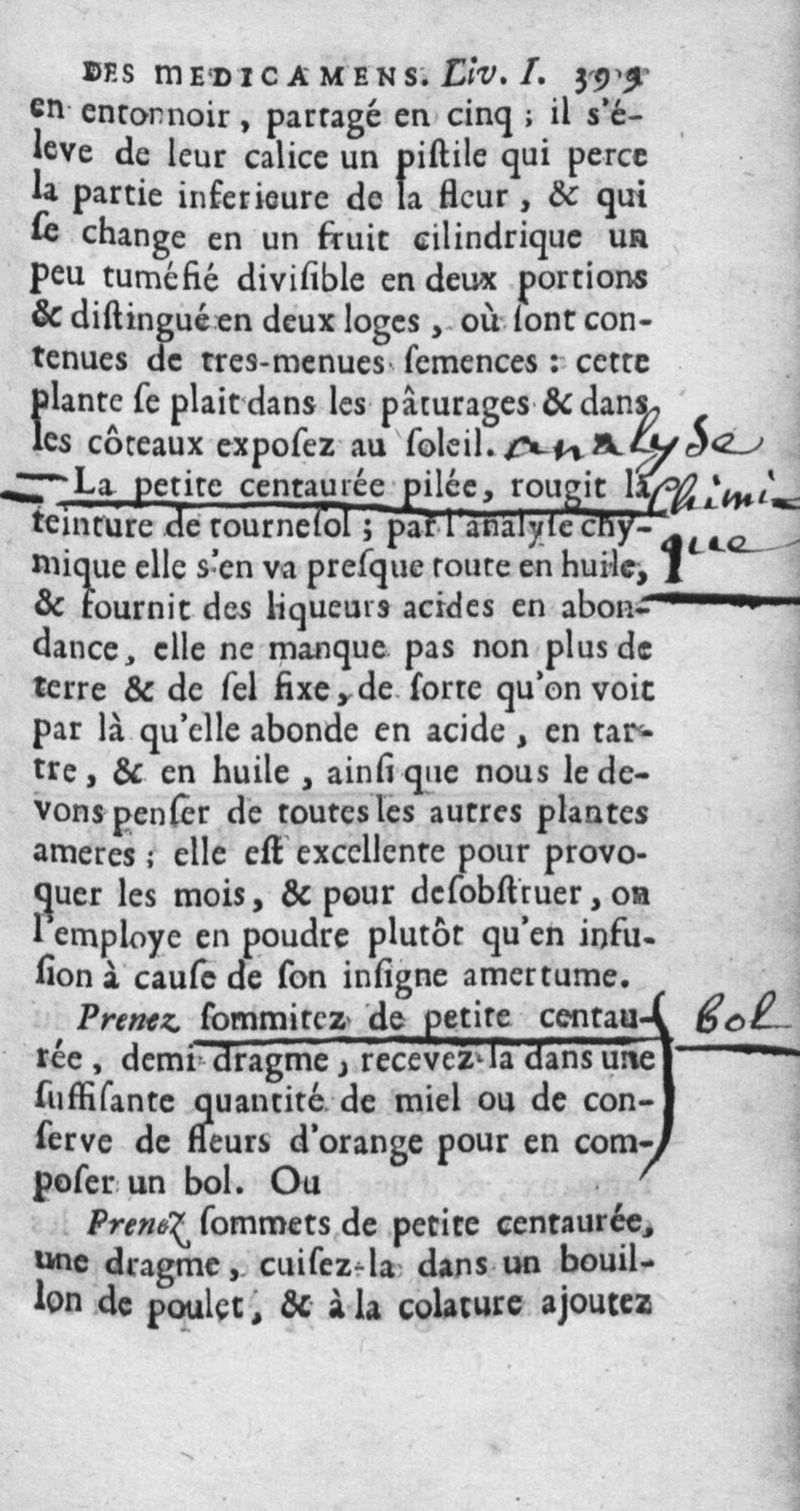 DES MEDICAMENS. Liv. I. 399
en entonnoir, partagé en cinq ; il s'é-
leve de leur calice un piſtile qui perce
la partie inferieure de la fleur, & qui
ſe change en un fruit cilindrique un
peu tuméfié diviſible en deux portions
& diſtingué en deux loges, où ſont con-
tenues de tres-menues ſemences : cette
plante ſe plait dans les pâturages & dans
les côteaux expoſez au ſoleil. analyse
La petite centaurée pilée, rougit la chimi
teinture de tourneſol ; par l'analyſe chy-
que
mique elle s'en va preſque toute en huile,
& fournit des liqueurs acides en abon-
dance, elle ne manque pas non plus de
terre & de ſel fixe, de ſorte qu'on voit
par là qu'elle abonde en acide, en tar-
tre, & en huile, ainſi que nous le de-
vons penſer de toutes les autres plantes
ameres ; elle eſt excellente pour provo-
quer les mois, & pour deſobſtruer, on
l'employe en poudre plutôt qu'en infu-
ſion à cauſe de ſon inſigne amertume.
Prenez ſommitez de petite centau- bol
rée, demi dragme, recevez-la dans une
ſuffiſante quantité de miel ou de con-
ſerve de fleurs d'orange pour en com-
poſer un bol. Ou
Prenez ſommets de petite centaurée,
une dragme, cuiſez-la dans un bouil-
lon de poulet, & à la colature ajoutez